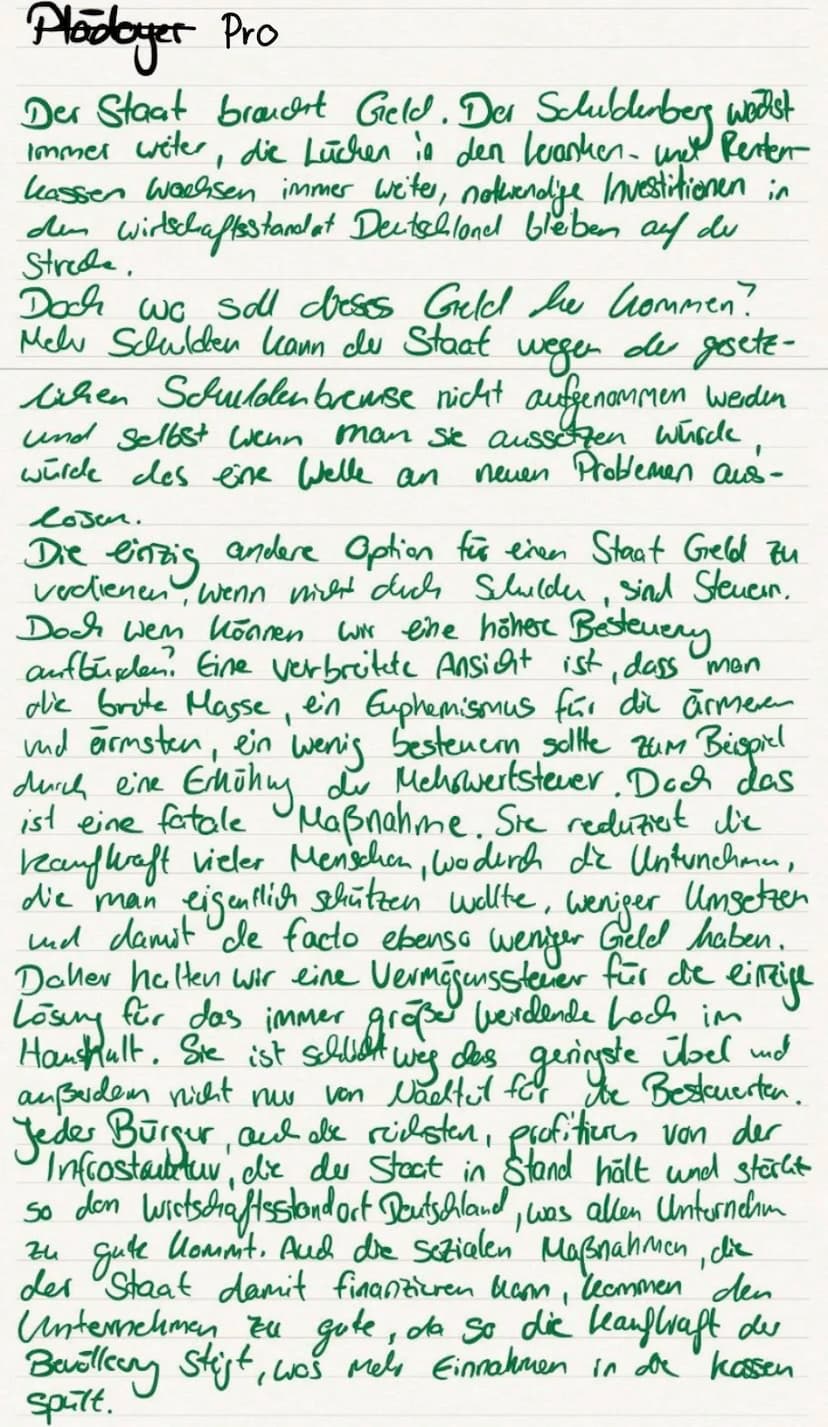 Plädoyer Pro
Der Staat braucht Geld. Der Schuldenberg wächst
immer weiter, die Lücken in den Kranken- und Renten-
kassen wachsen immer weiter, notwendige Investitionen in
den Wirtschaftsstandort Deutschland bleiben auf der
Strecke.
Doch wo soll dieses Geld her kommen?
Mehr Schulden kann der Staat wegen der gesetz-
lichen Schuldenbremse nicht aufgenommen werden
und selbst wenn man sie aussetzen würde,
würde das eine Welle an neuen Problemen aus-
lösen.
Die einzig andere Option für einen Staat Geld zu
verdienen, wenn nicht durch Schulden, sind Steuern.
Doch wem können wir eine höhere Besteuerung
aufbürden? Eine verbreitete Ansicht ist, dass man
die breite Masse, ein Euphemismus für die ärmeren
und ärmsten, ein wenig besteuern sollte zum Beispiel
durch eine Erhöhung der Mehrwertsteuer. Doch das
ist eine fatale Maßnahme. Sie reduziert die
Kaufkraft vieler Menschen, wodurch die Unternehmen,
die man eigentlich schützen wollte, weniger Umsetzen
und damit de facto ebenso weniger Geld haben.
Daher halten wir eine Vermögenssteuer für die einzige
Lösung für das immer größer werdende Loch im
Haushalt. Sie ist schlichtweg das geringste Übel und
außerdem nicht nur von Nachteil für die Besteuerten.
Jeder Bürger, auch die reichsten, profitieren von der
Infrastruktur, die der Staat in Stand hält und stärkt
so den Wirtschaftsstandort Deutschland, was allen Unternehmen
zu gute kommt. Auch die sozialen Maßnahmen, die
der Staat damit finanzieren kann, kommen den
Unternehmen zu gute, da so die Kaufkraft der
Bevölkerung steigt, was mehr Einnahmen in die Kassen
spült.